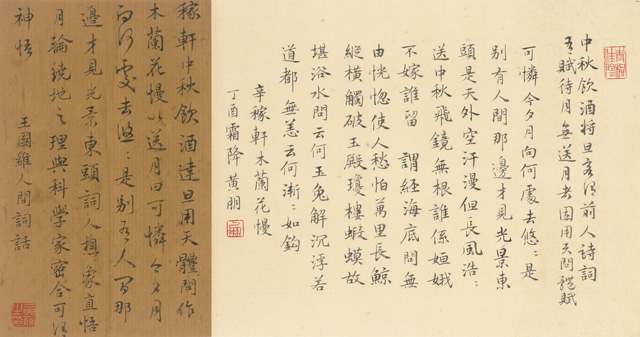 中秋飲酒將旦客謂前人詩詞
有賦待月無送月者因用天問體賦
可憐今夕月向何處去悠〻是
別有人間那邊才見光景東
頭是天外空汗漫但長風浩〻
送中秋飛鏡無根誰係姮娥
不嫁誰留 謂經海底問無
由恍惚使人愁怕萬里長鯨
縱橫觸破玉殿瓊樓蝦蟆故
堪浴水問云何玉兔解沉浮若
道都無恙云何漸〻如鉤
辛稼軒木蘭花慢
丁酉霜降黃朋
稼軒中秋飲酒達旦用天體問作
木蘭花慢以送月曰可憐今夕月
向何處去悠〻是別有人間那
邊才見光景東頭詞人想象直悟
月輪繞地之理與科學家密合可謂
神悟
王國維人間詞話